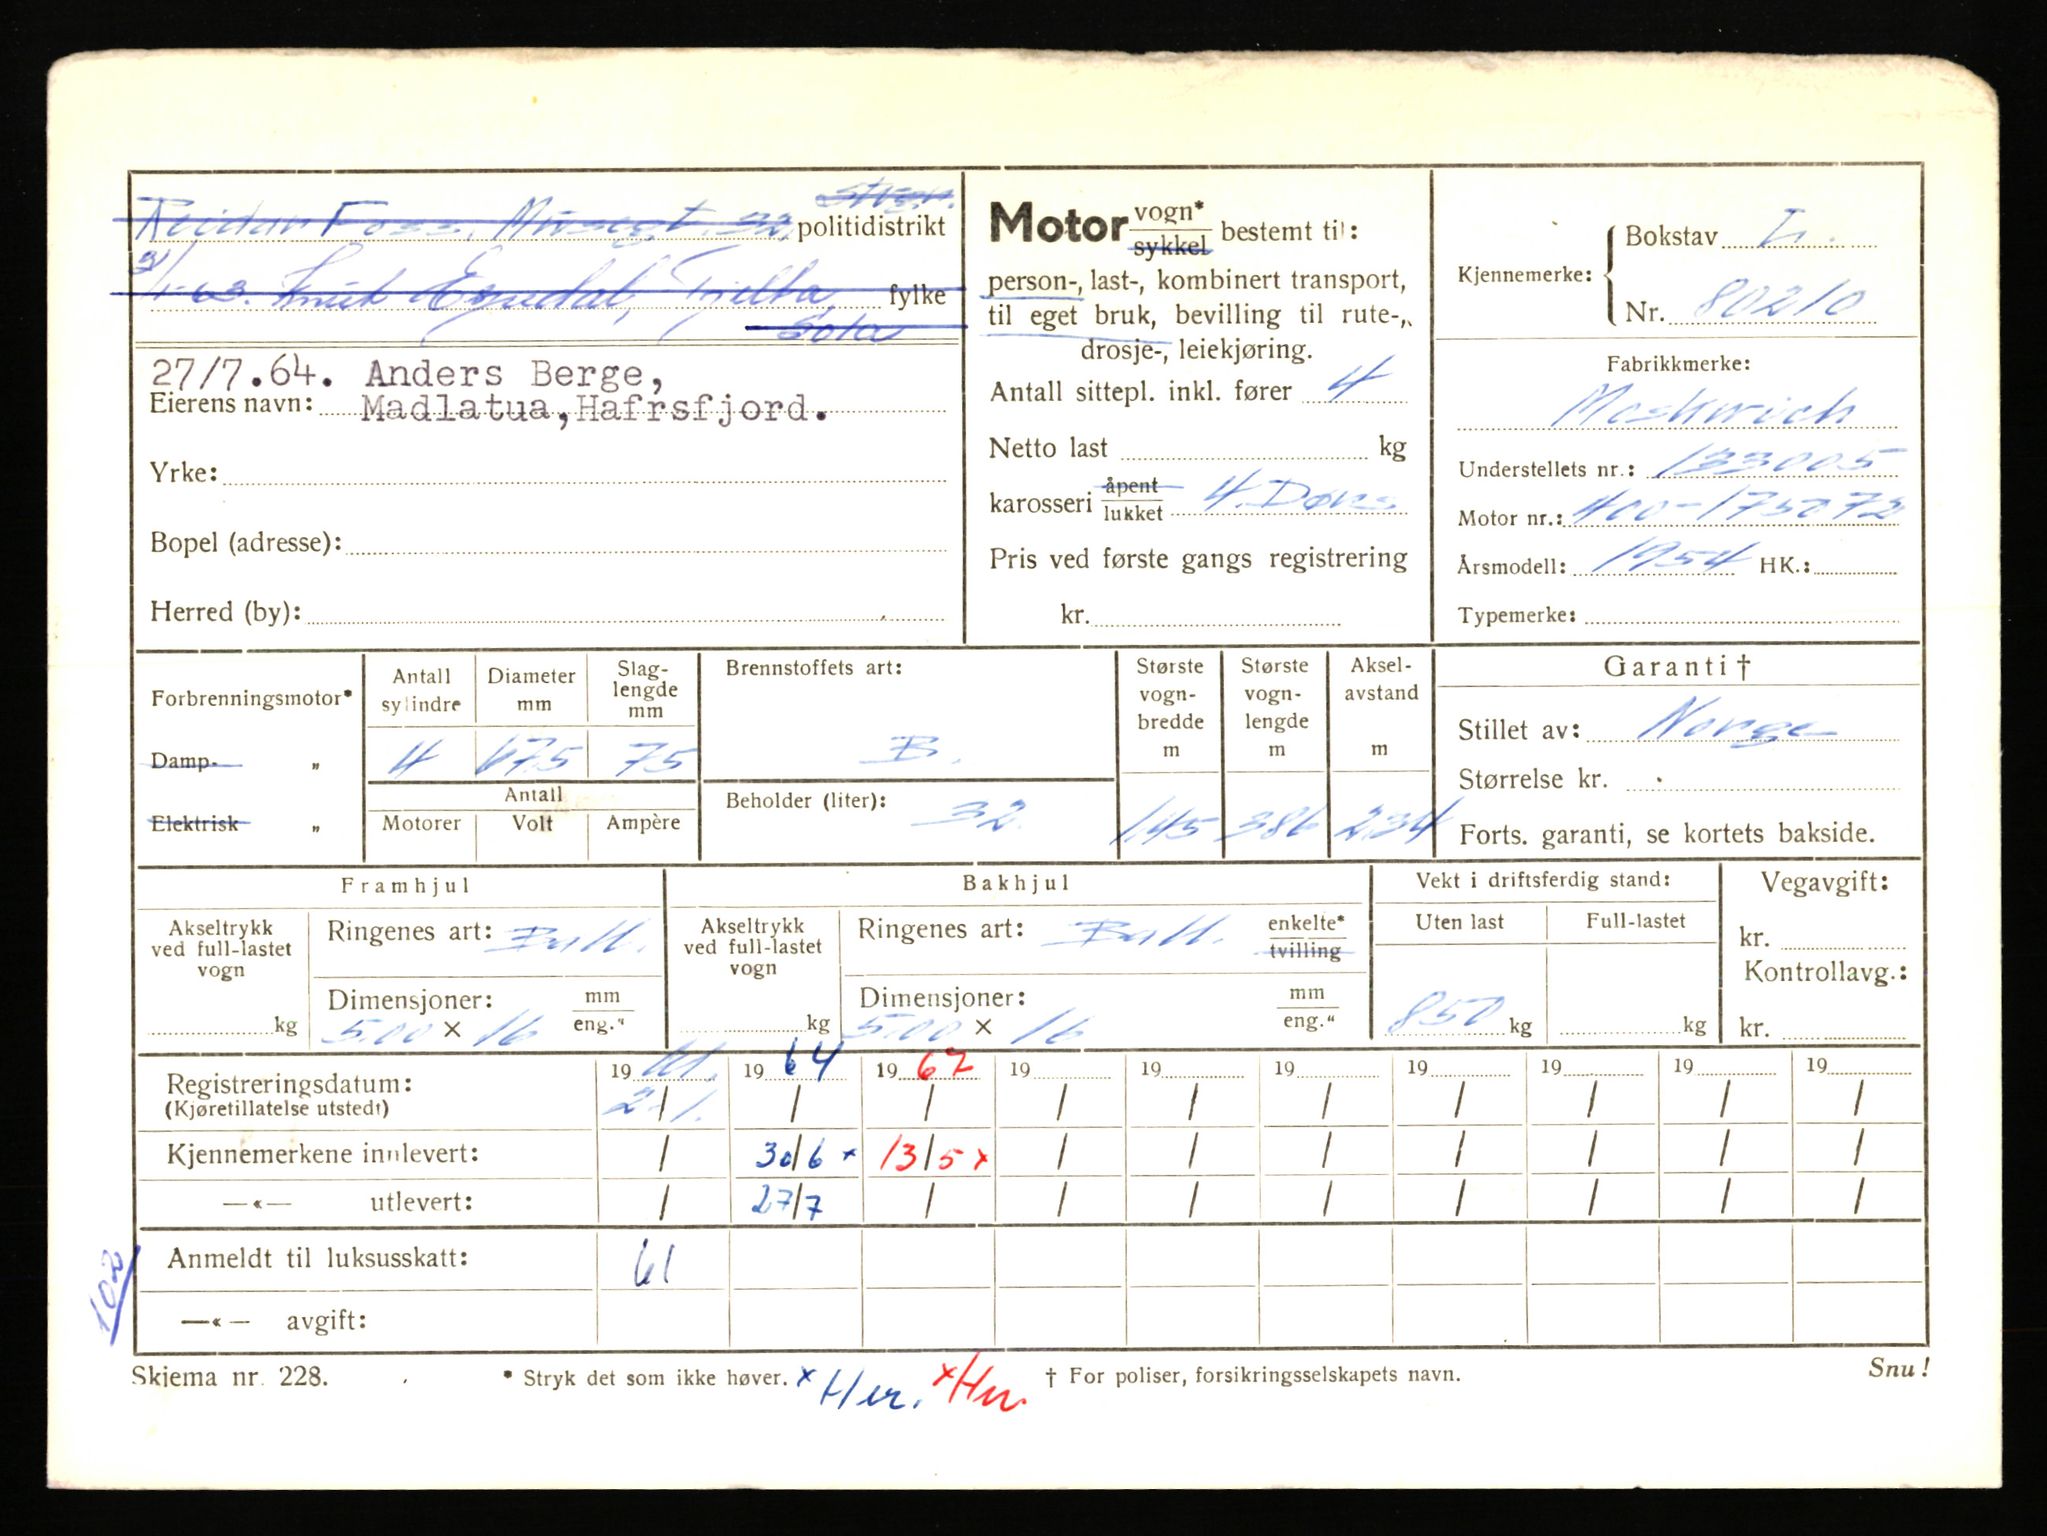 Reidar Foss, Musegt. 32, politidistrikt
63. Knut Egedal, Tjelta fylke
Sola
27/7.64. Anders Berge,
Eierens navn: Madlatua, Hafrsfjord.
Yrke:
Bopel (adresse):
Herred (by):
Motor vogn* sykkel bestemt til:
person-, last-, kombinert transport,
til eget bruk, bevilling til rute-,
drosje-, leiekjøring.
Antall sittepl. inkl. fører 4
Netto last kg
karosseri åpent lukket 4. Dørs
Pris ved første gangs registrering
kr.
Kjennemerke: Bokstav L.
Nr. 80210
Fabrikkmerke:
Moskwich
Understellets nr.: 133005
Motor nr.: 400-175072
Årsmodell: 1954 HK.:
Typemerke:
Forbrenningsmotor*
Damp- "
Elektrisk "
Antall sylindre Diameter mm Slag-lengde mm
4 67.5 75
Antall
Motorer Volt Ampère
Brennstoffets art:
B.
Beholder (liter): 32.
Største vogn-bredde m Største vogn-lengde m Aksel-avstand m
145 386 234
Garanti †
Stillet av: Norge
Størrelse kr.
Forts. garanti, se kortets bakside.
Framhjul
Akseltrykk ved full-lastet vogn
kg
Ringenes art: Ball.
Dimensjoner: mm
5.00 × 16 eng."
Bakhjul
Akseltrykk ved full-lastet vogn
kg
Ringenes art: Ball. enkelte* tvilling
Dimensjoner: mm
5.00 × 16 eng."
Vekt i driftsferdig stand:
Uten last Full-lastet
850 kg kg
Vegavgift:
kr.
Kontrollavg.:
kr.
Registreringsdatum: 19 61. 19 64 19 67 19 19 19 19 19 19 19
(Kjøretillatelse utstedt) 2/1. / / / / / / / / /
Kjennemerkene innlevert: / 30/6 x 13/5 x / / / / / / /
—«— utlevert: / 27/7 / / / / / / / /
Anmeldt til luksusskatt: 61
—«— avgift:
102
Skjema nr. 228. * Stryk det som ikke høver. x Her. x Her † For poliser, forsikringsselskapets navn. Snu!